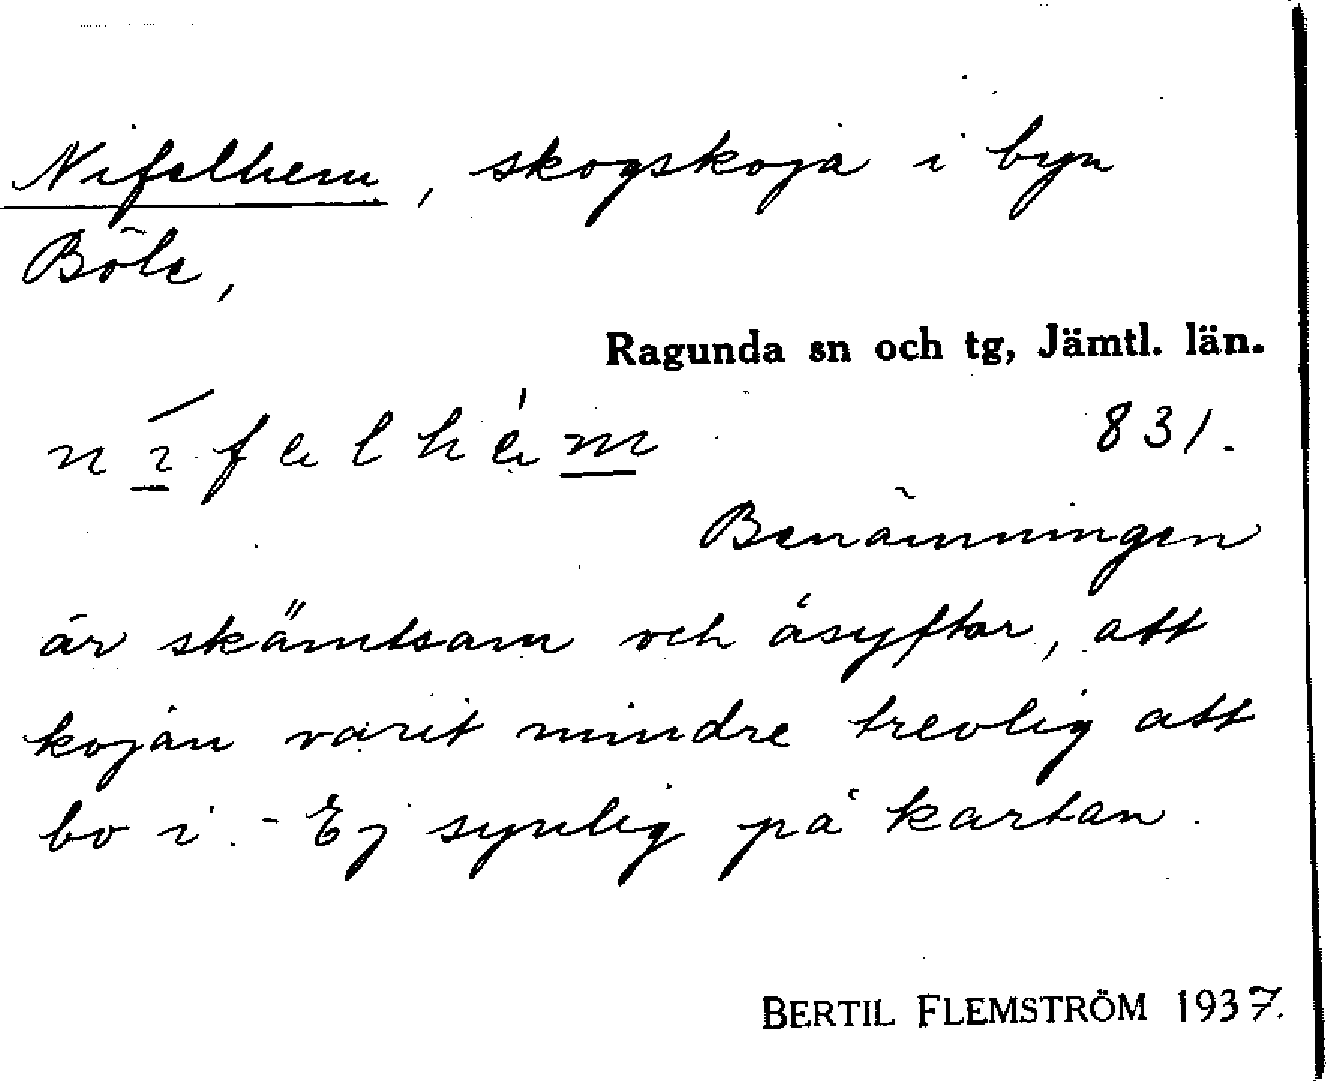 Nifelhem, skogskoja i byn
Böle,
Ragunda sn och tg, Jämtl. län.
nífelhèm 831.
Benämningen
är skämtsam och åsyftar, att
kojan varit mindre trevlig att
bo i. - Ej synlig på kartan.
BERTIL FLEMSTRÖM 1937.